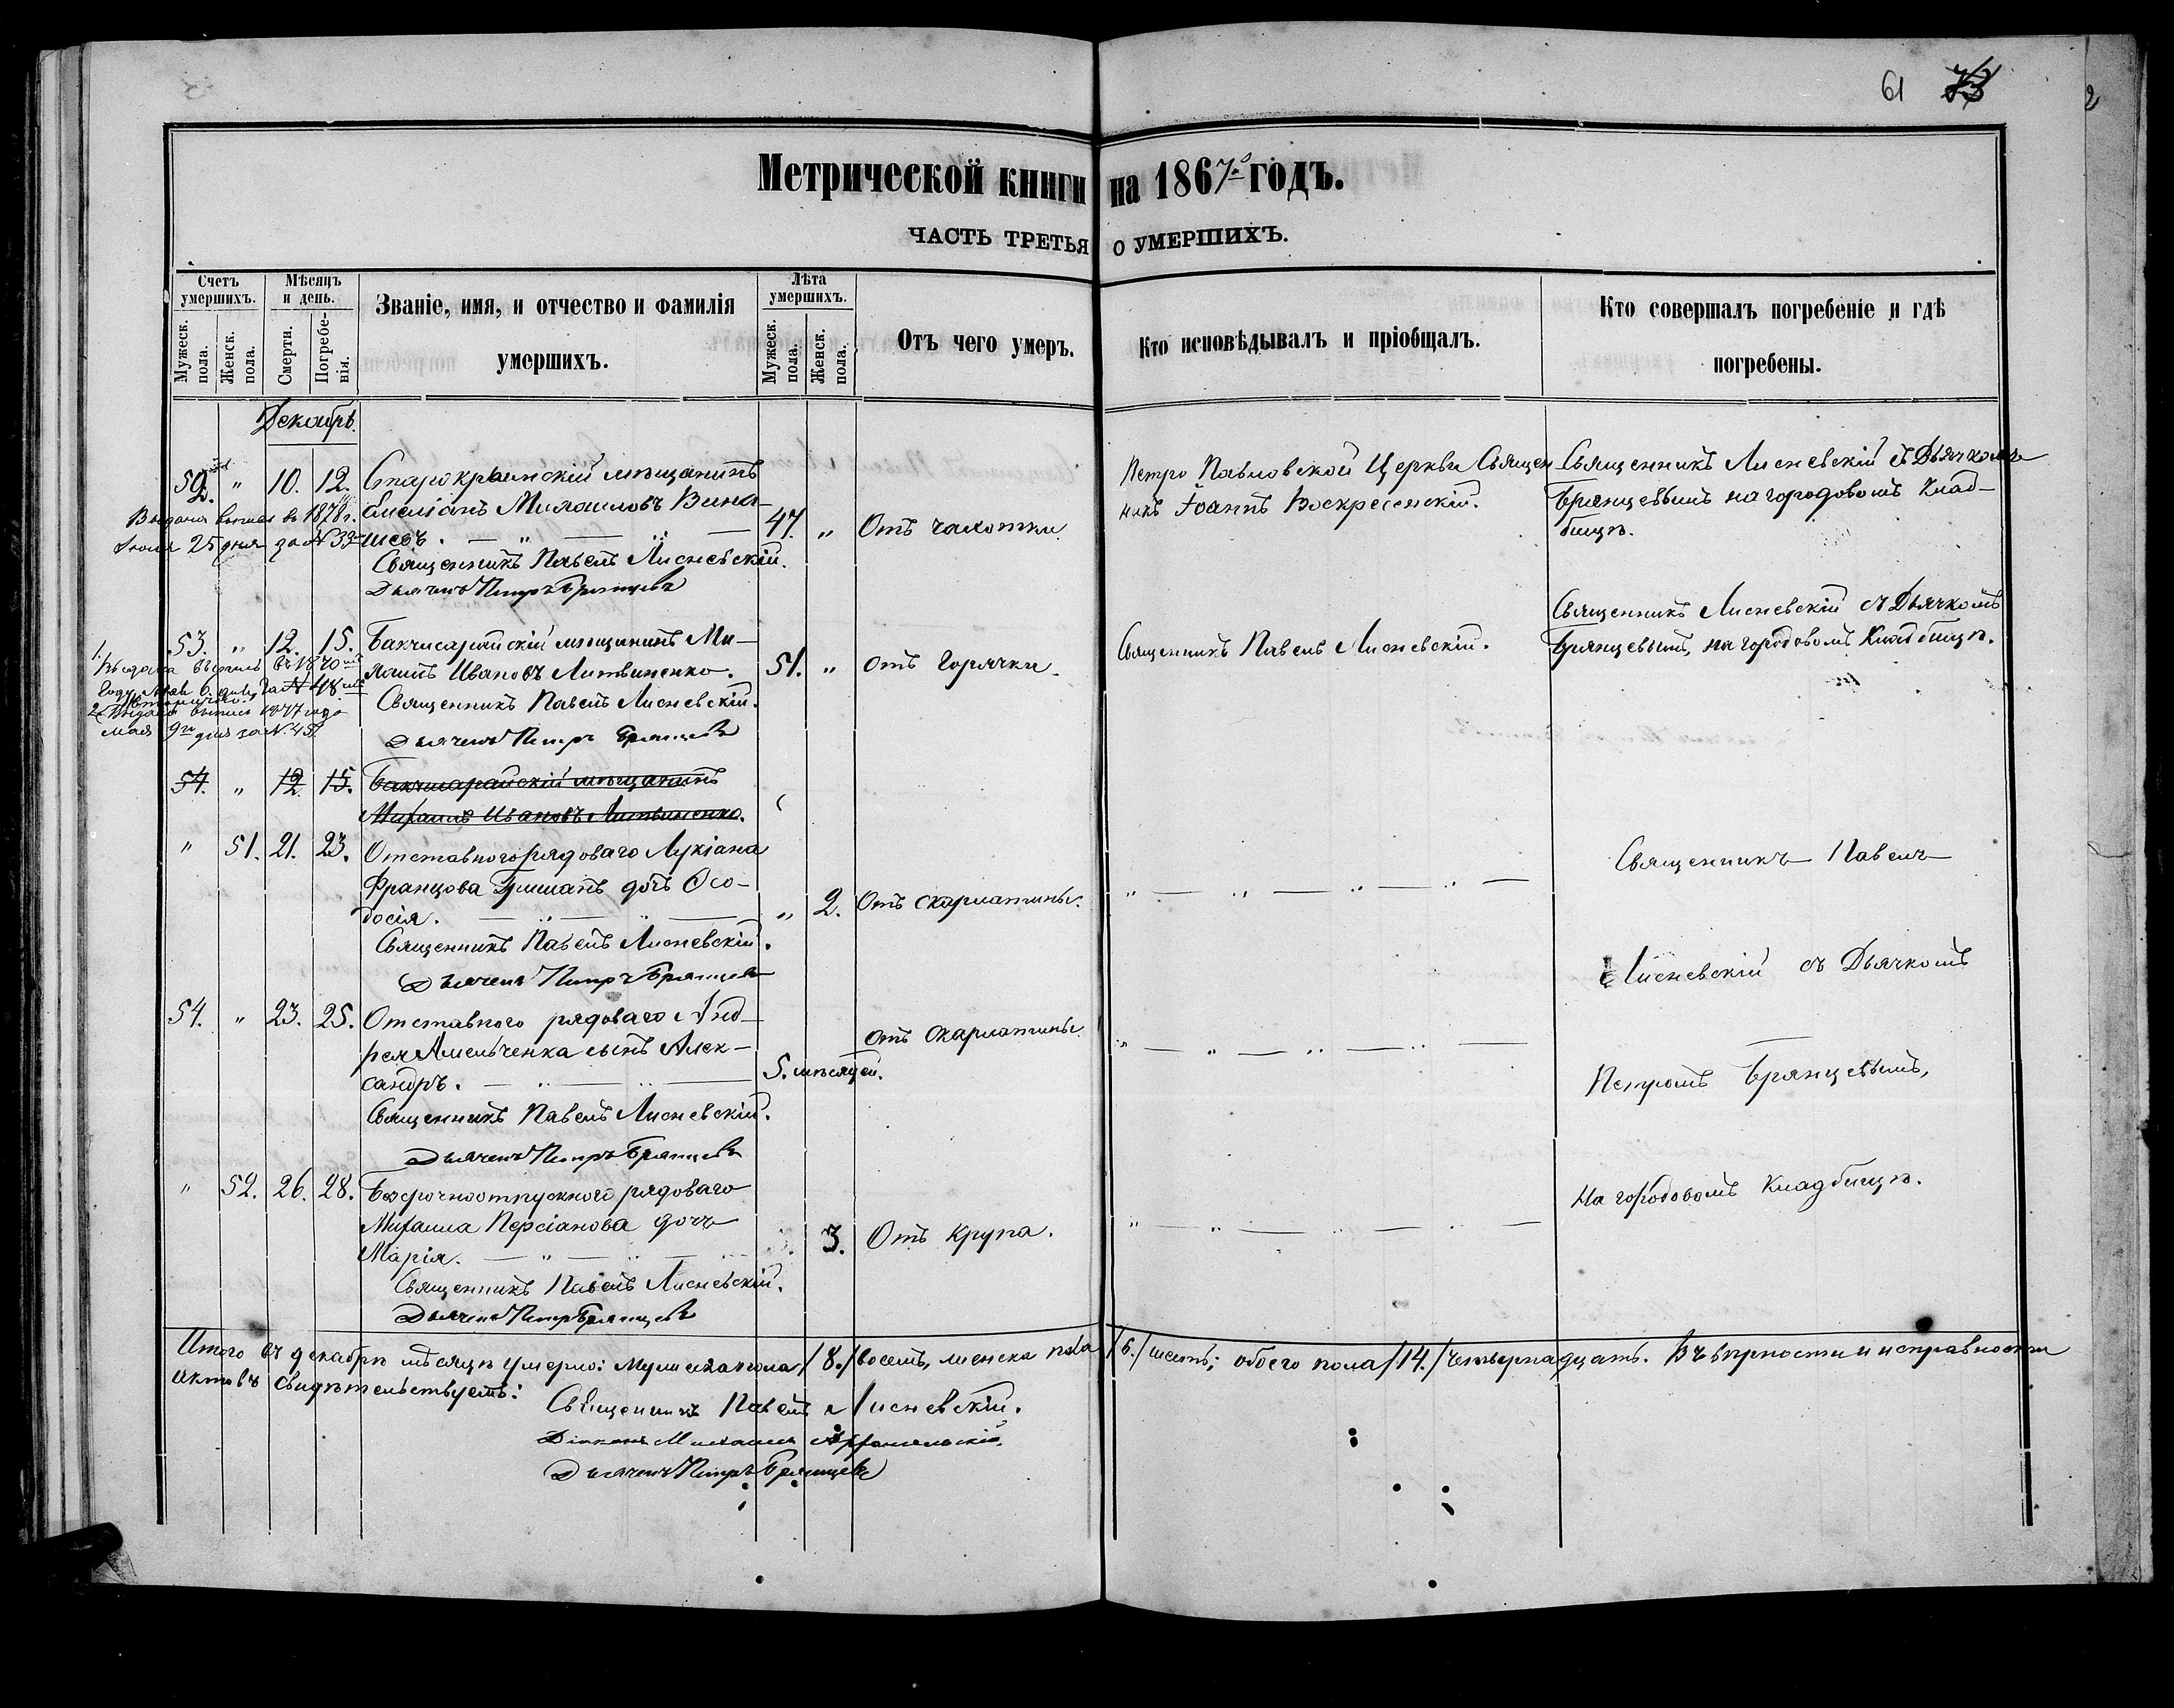 61 73
2
Метрической книги на 1867го годъ.
ЧАСТЬ ТРЕТЬЯ О УМЕРШИХЪ.
Счетъ умершихъ.
Мѣсяцъ и день.
Званіе, имя, и отчество и фамилія умершихъ.
Лѣта умершихъ.
Отъ чего умеръ.
Кто исповѣдывалъ и пріобщалъ.
Кто совершалъ погребеніе и гдѣ погребены.
Мужеск. пола.
Женск. пола.
Смерти.
Погребенія.
Мужеск. пола.
Женск. пола.
Декабрь.
52. " 10. 12. Старокрымскій мѣщанинъ
Емеліанъ Михаиловъ Вина-
шевъ. 47. " Отъ чахотки
Петро Павловской Церкви Священ-
никъ Іоаннъ Воскресенскій.
Священникъ Лисневскій съ Дьячкомъ
Брянцевымъ на городовомъ Клад-
бищѣ.
Выдана выпись въ 1878 г.
Іюля 25 дня за № 33
Священникъ Павелъ Лисневскій.
Дьячекъ Петръ Брянцевъ
53. " 12. 15. Бакчисарайскій мѣщанинъ Ми-
хаилъ Ивановъ Литвиненко. 51. " отъ Горячки.
Священникъ Павелъ Лисневскій.
Священникъ Лисневскій съ Дьячкомъ
Брянцевымъ, на городовомъ Кладбищѣ.
1. Выдана выпись въ 1870мъ
Году Мая 6. дня За № 48мъ
2. Вторично
Выдана выпись 1877 года
Мая 9го дня за № 45
Священникъ Павелъ Лисневскій.
Дьячекъ Петръ Брянцевъ
54. " 12 15. Бакчисарайскій мѣщанинъ
Михаилъ Ивановъ Литвиненко.
" 51. 21. 23. Отставного рядоваго Лукіана
Францова Гришанъ дочь Ѳео-
досія. " 2. Отъ скарлатины.
Священникъ Павелъ Лисневскій.
Дьячекъ Петръ Брянцевъ
Священникъ Павелъ
Лисневскій съ Дьячкомъ
Петромъ Брянцевымъ,
На городовомъ Кладбищѣ.
54. " 23. 25. Отставного рядоваго Анд-
рея Амельченка сынъ Алек-
сандръ. 5. мѣсяцей. отъ скарлатины.
Священникъ Павелъ Лисневскій.
Дьячекъ Петръ Брянцевъ
" 52. 26. 28. Безсрочноотпускного рядоваго
Михаила Персіанова дочь
Марія. 3. Отъ крупа.
Священникъ Павелъ Лисневскій.
Дьячекъ Петръ Брянцевъ
Итого въ декабрѣ мѣсяцѣ умерло: мужеска пола /8./ восемь, женска пола /6./ шесть; обоего пола /14./ четырнадцать. Въ вѣрности и исправности
актовъ свидѣтельствуемъ:
Священникъ Павелъ Лисневскій.
Діаконъ Михаилъ
Дьячекъ Петръ Брянцевъ